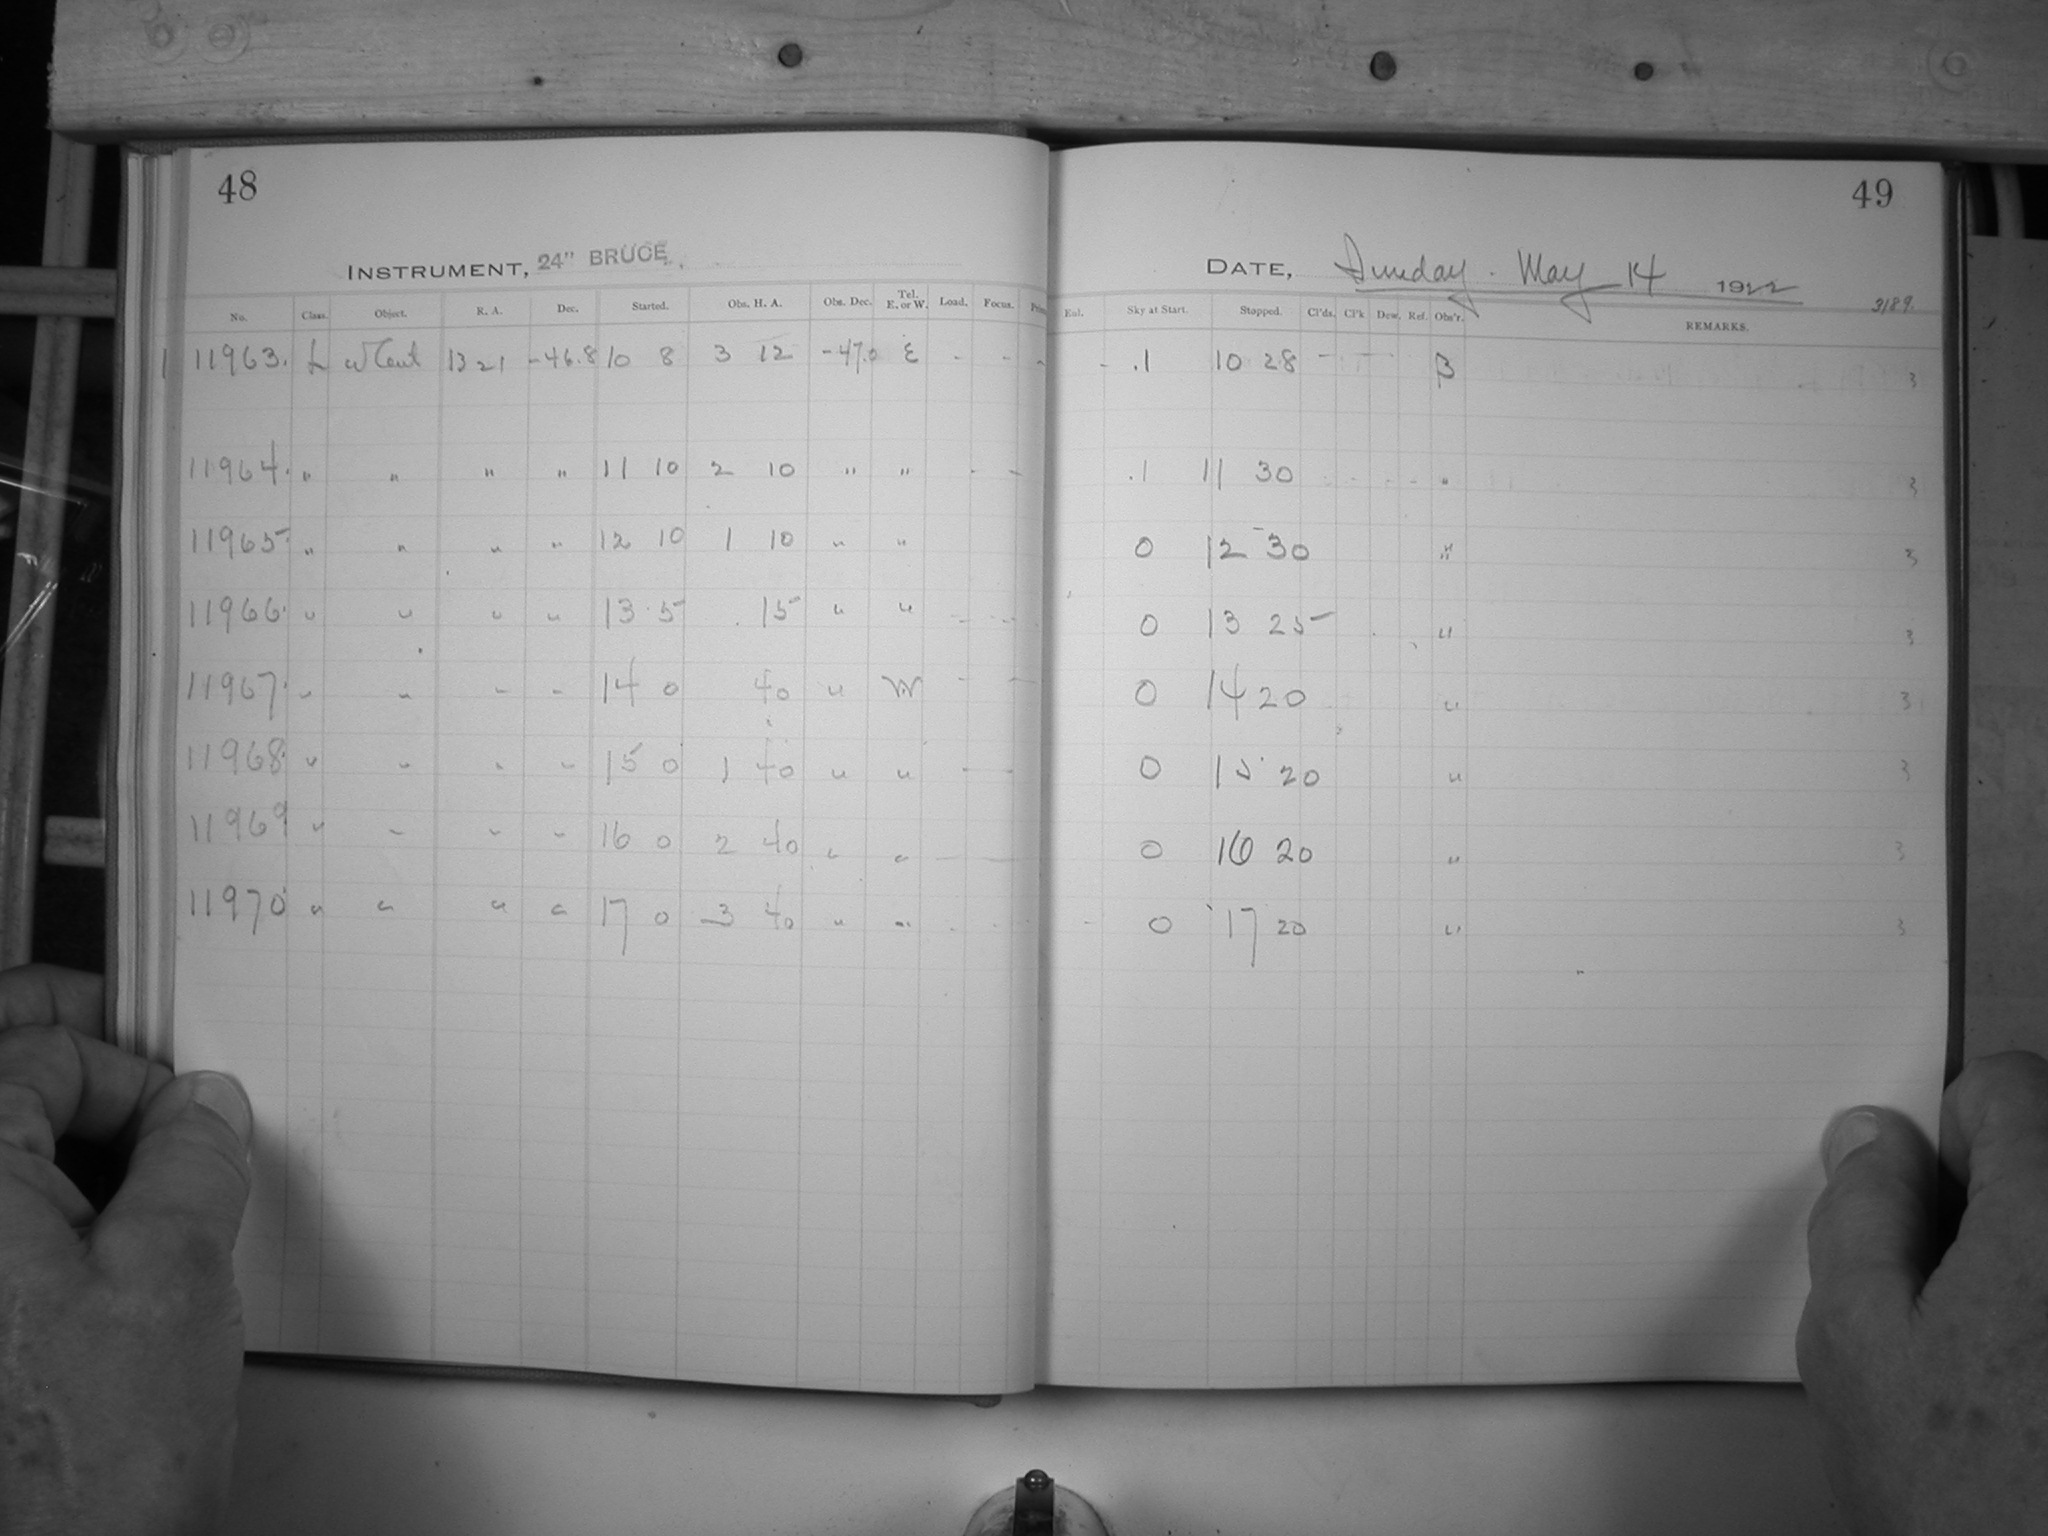 48
49
INSTRUMENT, 24" BRUCE.
DATE, Sunday. May 14 1922
3189.
No. Class. Object. R. A. Dec. Started. Obs. H. A. Obs. Dec. Tel. E. or W. Load. Focus. Enl. Sky at Start. Stopped. Cl'ds. Cl'k Dew. Ref. Obs'r. REMARKS.
1 11963. L ω Cent 13 21 -46.8 10 8 3 12 -47.0 E - - - - .1 10 28 - - B 3
11964. " " " " 11 10 2 10 " " - - .1 11 30 - - - - " 3
11965. " " " " 12 10 1 10 " " 0 12 30 " 3
11966. " " " " 13 5 15 " " - - 0 13 25 " 3
11967. " " " " 14 0 40 " W - - 0 14 20 " 3
11968. " " " " 15 0 1 40 " " - 0 15 20 " 3
11969 " " " " 16 0 2 40 " " - - 0 16 20 " 3
11970 " " " " 17 0 3 40 " " - - - 0 17 20 " 3